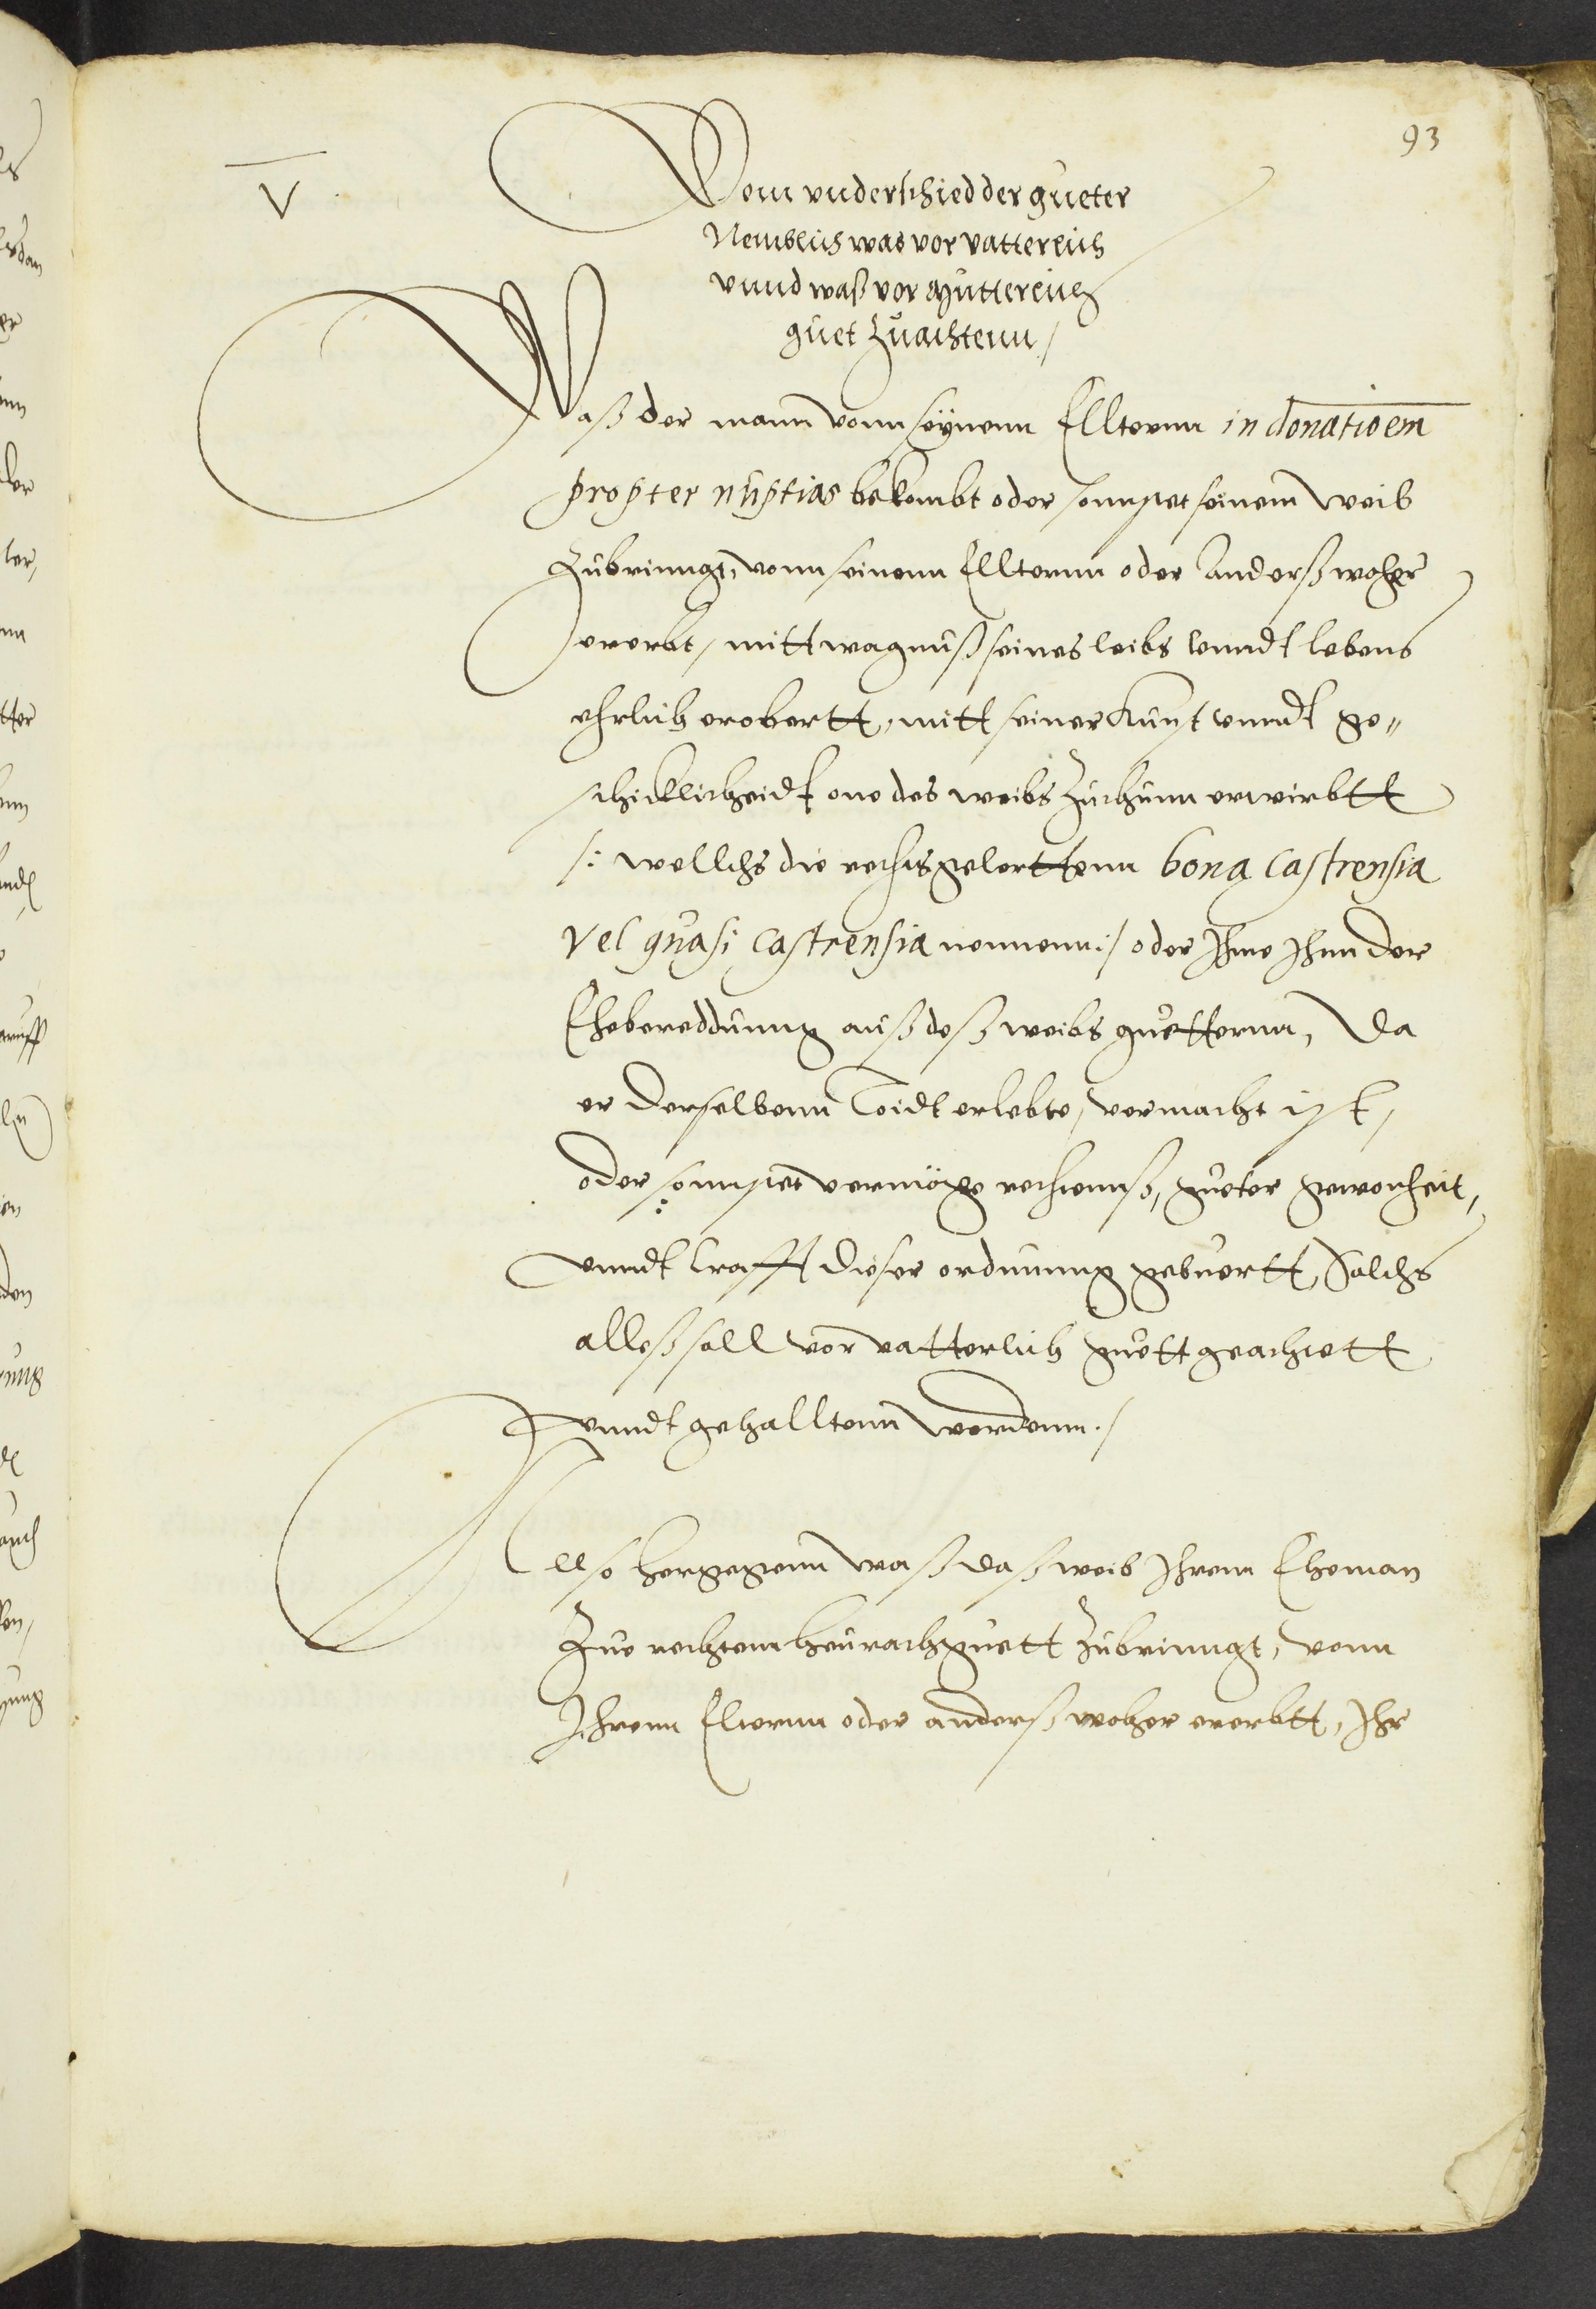 93
V
Vom vnderschied der gueter
Nemblich was vor vatterlich
vnnd waß vor Mutterlich
guet zuachtenn /
Waß der mann vonn seynenn Ellternn in donatioem
propter nuptias bekombt oder sonnster seinem weib
zubrinngt, vonn seinenn Ellternn oder anderßwoher
ererbt, mitt wagnuß seines leibs vnndt lebens
ehrlich erobertt, mitt seiner kunst vnndt ge„
schicklicheidt one des weibs zuthunn erwirbtt
/: wellchs die rechtsgelerttenn bona castrensia
vel quasi castrensia nennenn :/ oder Ihme Ihnn der
Ehebereddunng auß deß weibs guetternn, da
er derselbenn Toidt erlebte, vermacht ist,
oder sonnster vermöge rechtennß, gueter gewonheit,
vnndt krafft dieser ordnunng gebuertt, Solchs
alleß soll vor vatterlich guett geachtett
vnndt gehalltenn werdenn. /
Allso hergegenn waß daß weib Ihrem Eheman
Zue rechtem heurathguett zubrinngt, vonn
Ihrenn Elternn oder anderßwoher ererbtt, Ihr